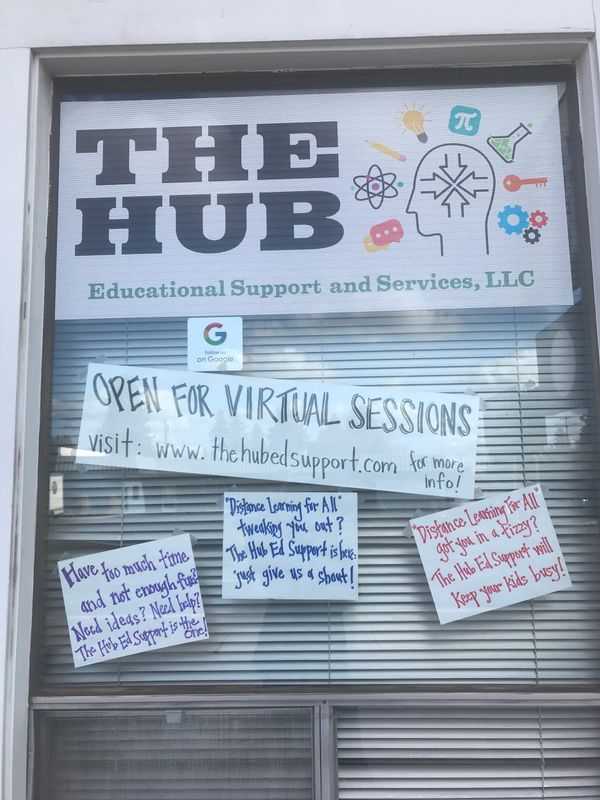 THE
HUB
π
Educational Support and Services, LLC
G
follow us
on Google
OPEN FOR VIRTUAL SESSIONS
visit: www.thehubedsupport.com for more
info!
"Distance Learning for All"
tweaking you out?
The Hub Ed Support is here:
just give us a shout!
"Distance Learning For All"
got you in a tizzy?
The Hub Ed Support will
Keep your kids busy!
Have too much time
and not enough fun?
Need ideas? Need help?
The Hub Ed Support is the
one!